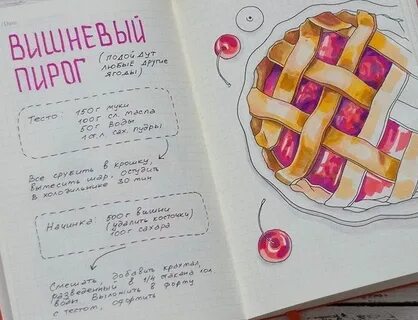 ВИШНЕВЫЙ
ПИРОГ
(ПОДОЙДУТ
ЛЮБЫЕ ДРУГИЕ
ЯГОДЫ)
Тесто: 150г муки
100г сл. масла
50г воды
1 ст.л сах. пудры
Все срубить в крошку,
вымесить шар, остудить
в холодильнике 30 мин
Начинка: 500г вишни
(удалить косточки)
100г сахара
Смешать, добавить крахмал,
разведенный в 1/4 стакана хол.
воды. Выложить в форму
с тестом, оформить